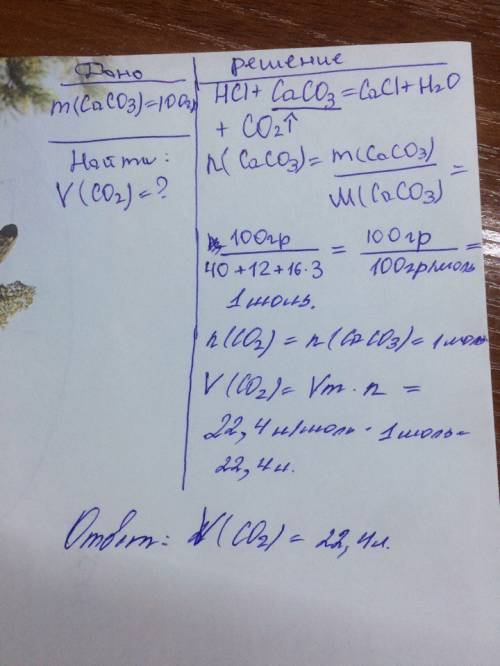 Дано
m(CaCO3)=100г
Найти:
V(CO2)=?
решение
HCl+CaCO3=CaCl+H2O
+ CO2↑
n(CaCO3)= m(CaCO3)/M(CaCO3) =
100гр/40+12+16·3 = 100гр/100гр/моль =
1 моль.
n(CO2) = n(CaCO3)=1моль
V(CO2)= Vm · n =
22,4л/моль · 1моль=
22,4л.
Ответ: V(CO2) = 22,4л.